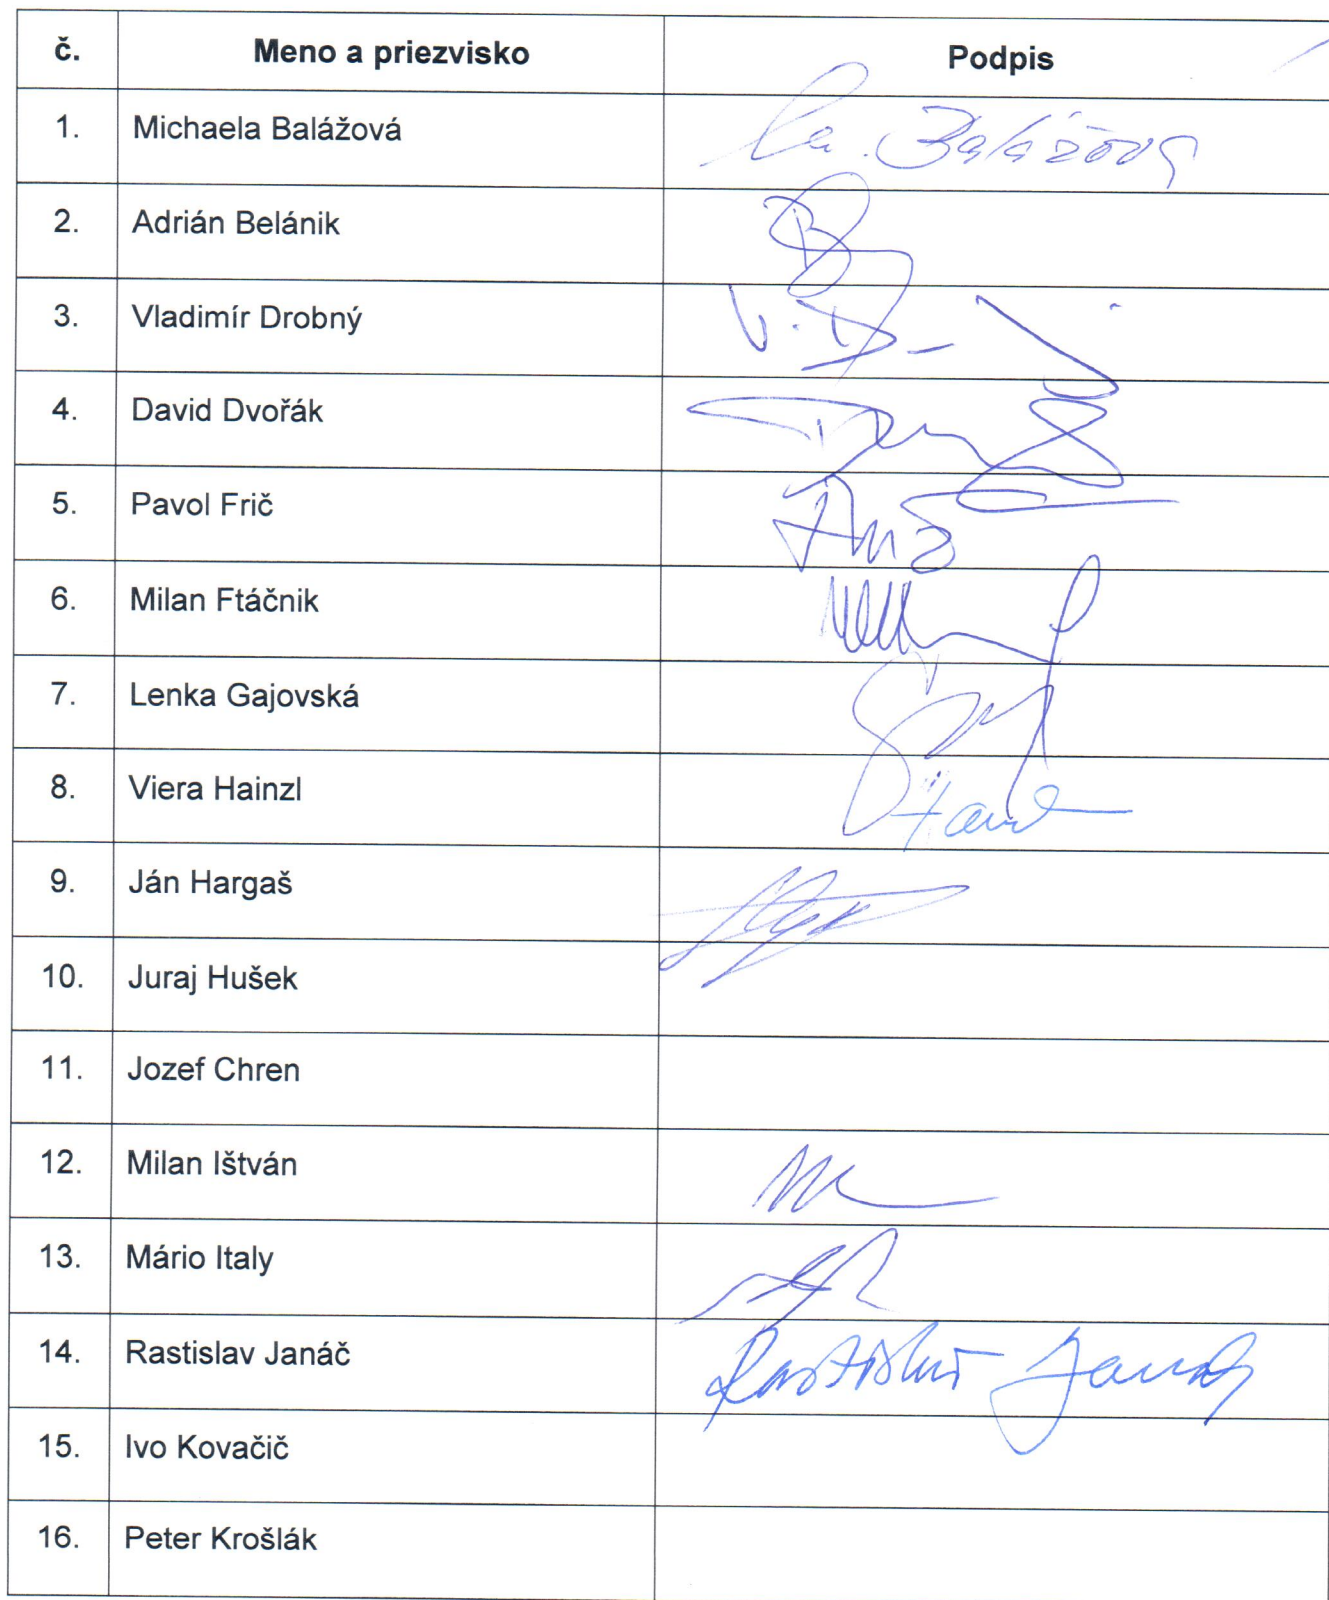 č. Meno a priezvisko Podpis
1. Michaela Balážová Balážová
2. Adrián Belánik
3. Vladimír Drobný
4. David Dvořák
5. Pavol Frič
6. Milan Ftáčnik
7. Lenka Gajovská
8. Viera Hainzl
9. Ján Hargaš
10. Juraj Hušek
11. Jozef Chren
12. Milan Ištván
13. Mário Italy
14. Rastislav Janáč Rastislav Janáč
15. Ivo Kovačič
16. Peter Krošlák